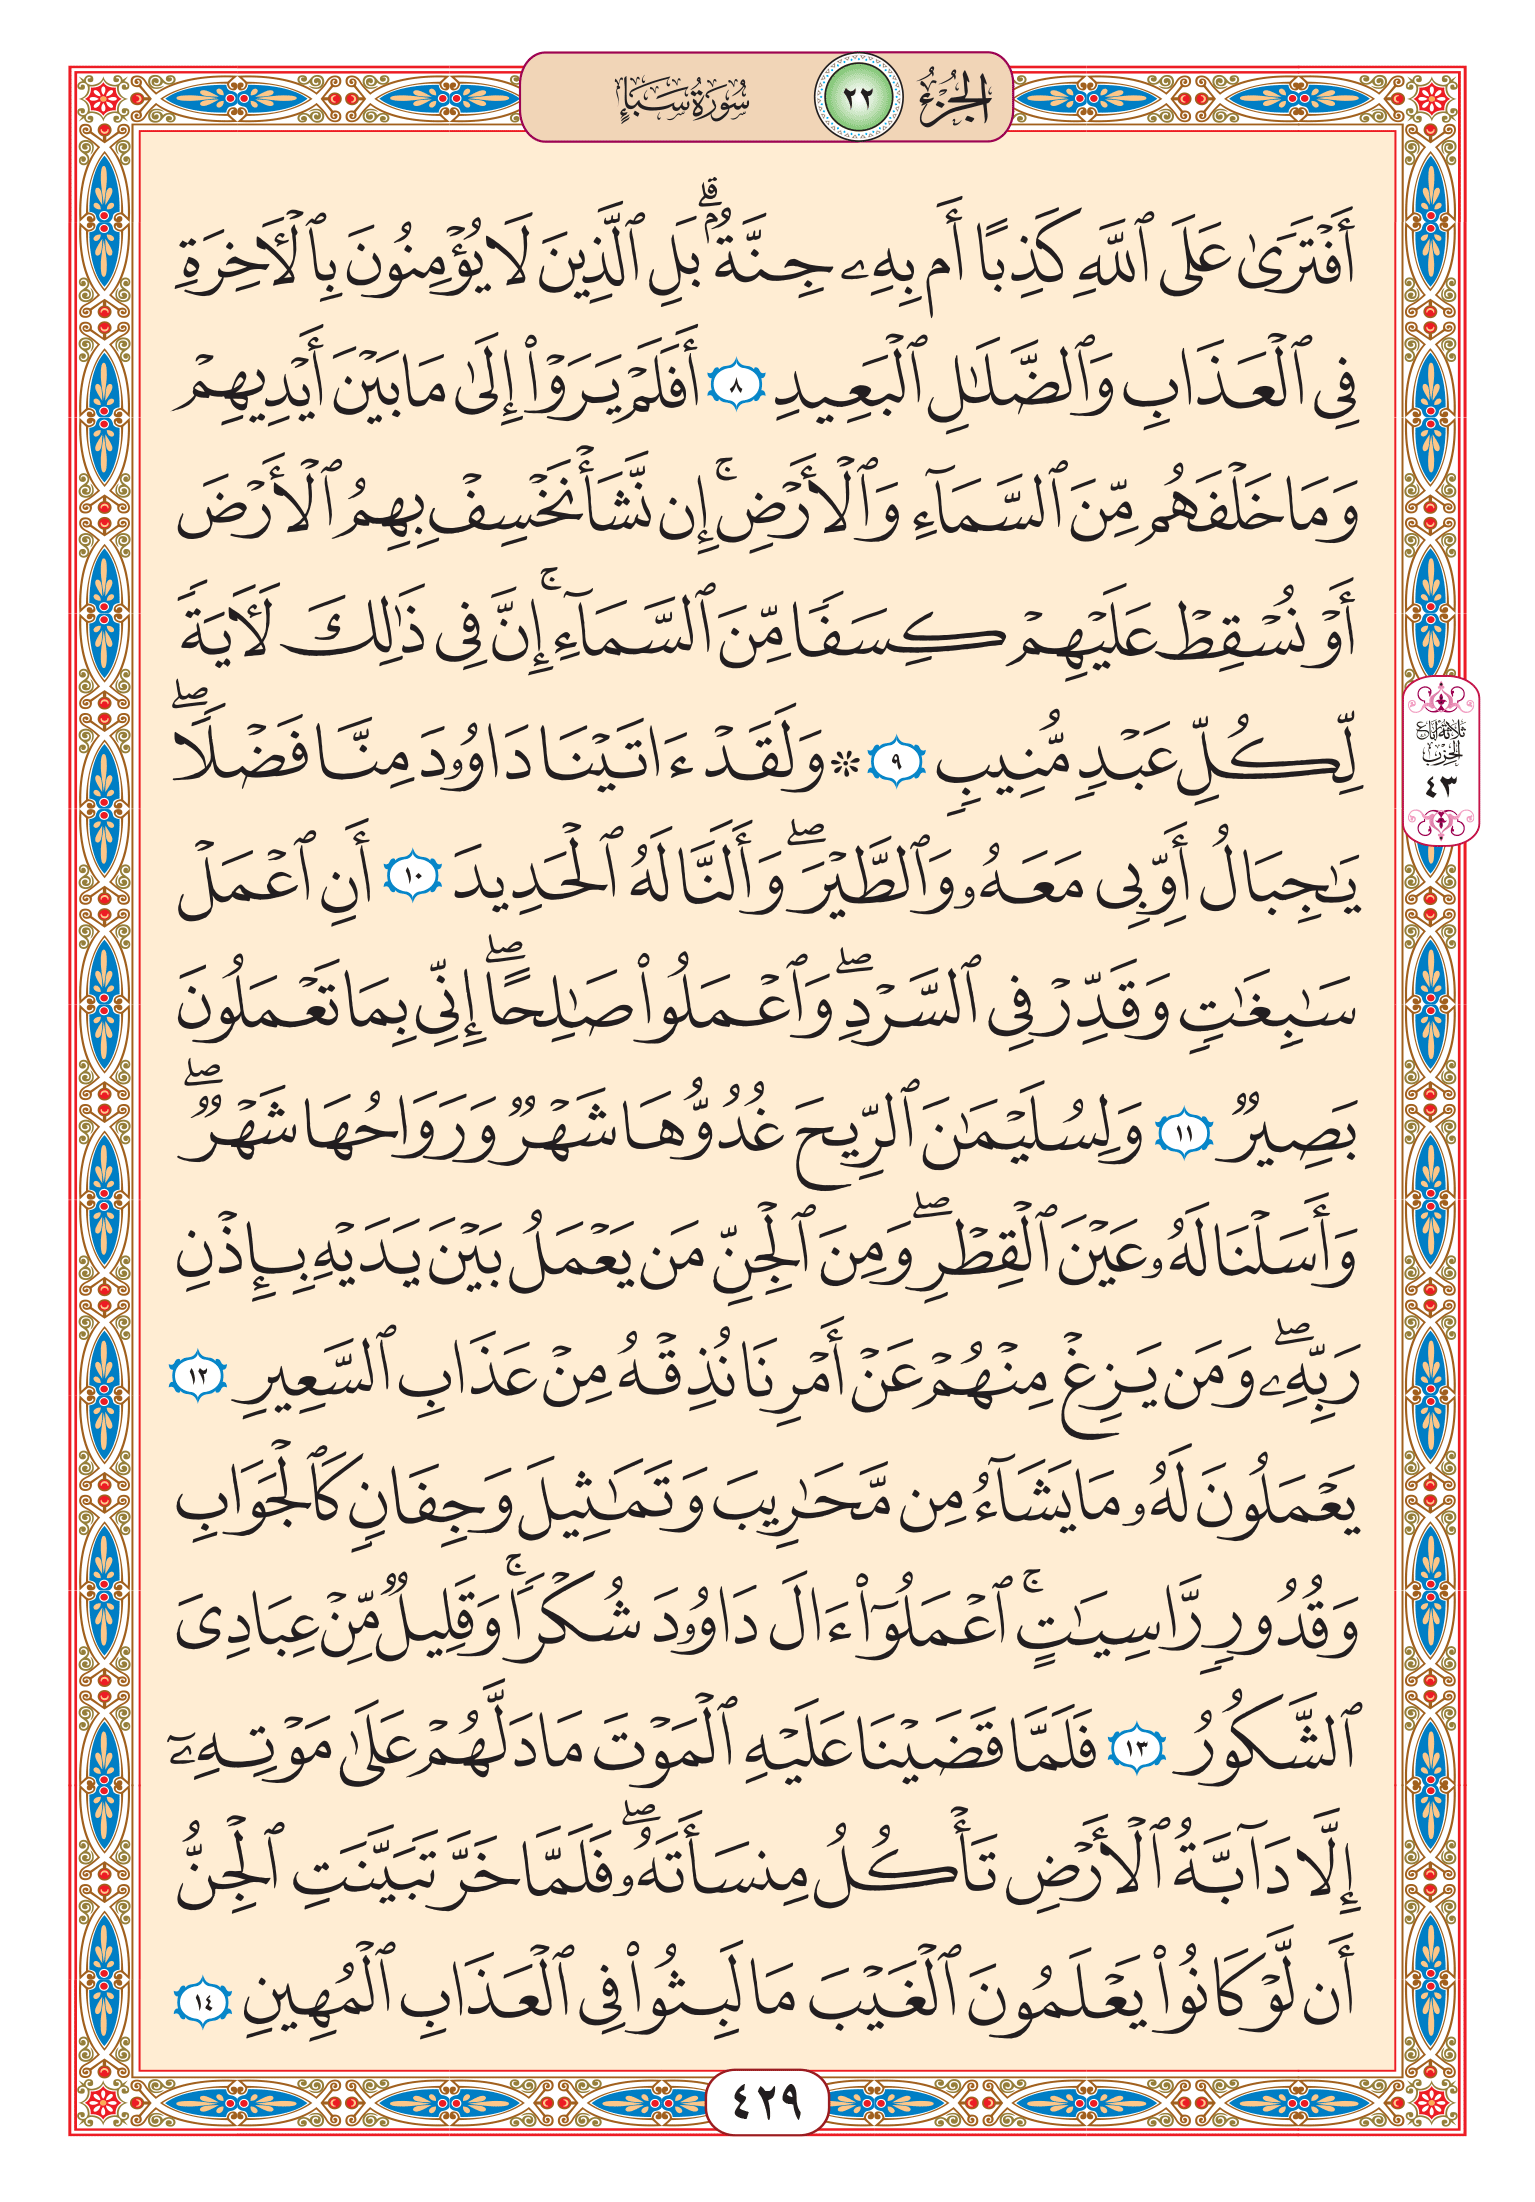 الجزء ٢٢ سورة سبإ
أَفْتَرَىٰ عَلَى ٱللَّهِ كَذِبًا أَم بِهِۦ جِنَّةُۢ ۗ بَلِ ٱلَّذِينَ لَا يُؤْمِنُونَ بِٱلْأَخِرَةِ
فِى ٱلْعَذَابِ وَٱلضَّلَٰلِ ٱلْبَعِيدِ ٨ أَفَلَمْ يَرَوْا۟ إِلَىٰ مَا بَيْنَ أَيْدِيهِمْ
وَمَا خَلْفَهُم مِّنَ ٱلسَّمَآءِ وَٱلْأَرْضِ ۚ إِن نَّشَأْ نَخْسِفْ بِهِمُ ٱلْأَرْضَ
أَوْ نُسْقِطْ عَلَيْهِمْ كِسَفًا مِّنَ ٱلسَّمَآءِ ۚ إِنَّ فِى ذَٰلِكَ لَءَايَةً
لِّكُلِّ عَبْدٍ مُّنِيبٍ ٩ ۞ وَلَقَدْ ءَاتَيْنَا دَاوُۥدَ مِنَّا فَضْلًا ۖ
يَٰجِبَالُ أَوِّبِى مَعَهُۥ وَٱلطَّيْرَ ۖ وَأَلَنَّا لَهُ ٱلْحَدِيدَ ١٠ أَنِ ٱعْمَلْ
سَٰبِغَٰتٍ وَقَدِّرْ فِى ٱلسَّرْدِ ۖ وَٱعْمَلُوا۟ صَٰلِحًا ۖ إِنِّى بِمَا تَعْمَلُونَ
بَصِيرٌ ١١ وَلِسُلَيْمَٰنَ ٱلرِّيحَ غُدُوُّهَا شَهْرٌ وَرَوَاحُهَا شَهْرٌ ۖ
وَأَسَلْنَا لَهُۥ عَيْنَ ٱلْقِطْرِ ۖ وَمِنَ ٱلْجِنِّ مَن يَعْمَلُ بَيْنَ يَدَيْهِ بِإِذْنِ
رَبِّهِۦ ۖ وَمَن يَزِغْ مِنْهُمْ عَنْ أَمْرِنَا نُذِقْهُ مِنْ عَذَابِ ٱلسَّعِيرِ ١٢
يَعْمَلُونَ لَهُۥ مَا يَشَآءُ مِن مَّحَٰرِيبَ وَتَمَٰثِيلَ وَجِفَانٍ كَٱلْجَوَابِ
وَقُدُورٍ رَّاسِيَٰتٍ ۚ ٱعْمَلُوٓا۟ ءَالَ دَاوُۥدَ شُكْرًا ۚ وَقَلِيلٌ مِّنْ عِبَادِىَ
ٱلشَّكُورُ ١٣ فَلَمَّا قَضَيْنَا عَلَيْهِ ٱلْمَوْتَ مَا دَلَّهُمْ عَلَىٰ مَوْتِهِۦٓ
إِلَّا دَآبَّةُ ٱلْأَرْضِ تَأْكُلُ مِنسَأَتَهُۥ ۖ فَلَمَّا خَرَّ تَبَيَّنَتِ ٱلْجِنُّ
أَن لَّوْ كَانُوا۟ يَعْلَمُونَ ٱلْغَيْبَ مَا لَبِثُوا۟ فِى ٱلْعَذَابِ ٱلْمُهِينِ ١٤
ثلاثة أرباع
الحزب
٤٣
٤٢٩